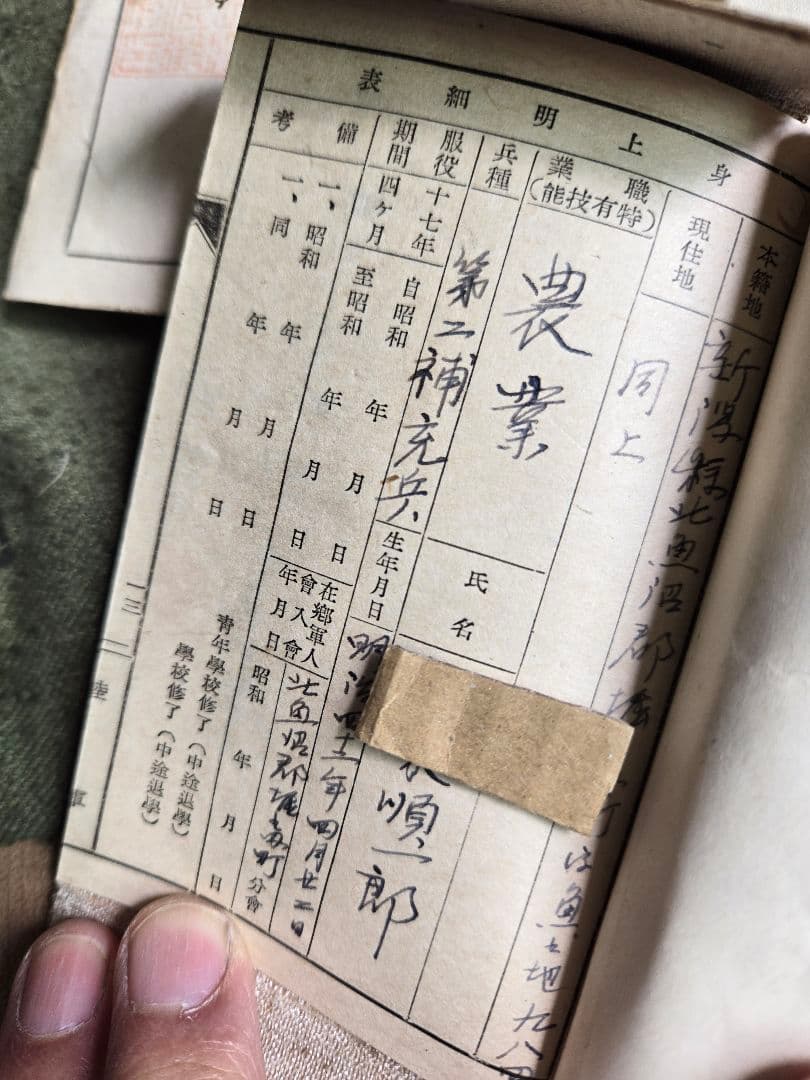 身上明細表
本籍地
新潟縣北魚沼郡堀
魚
地九八
現住地
同上
職業
(特有技能)
農業
氏名
順一郎
兵種
第二補充兵
生年月日
明治四十一年四月廿二日
服役期間
十七年四ヶ月
自昭和 年 月 日
至昭和 年 月 日
在鄉軍人會入會年月日
北魚沼郡堀之内町分會
昭和 年 月 日
備考
一、昭和 年 月 日 青年學校修了(中途退學)
一、同 年 月 日 學校修了(中途退學)
一三
陸軍